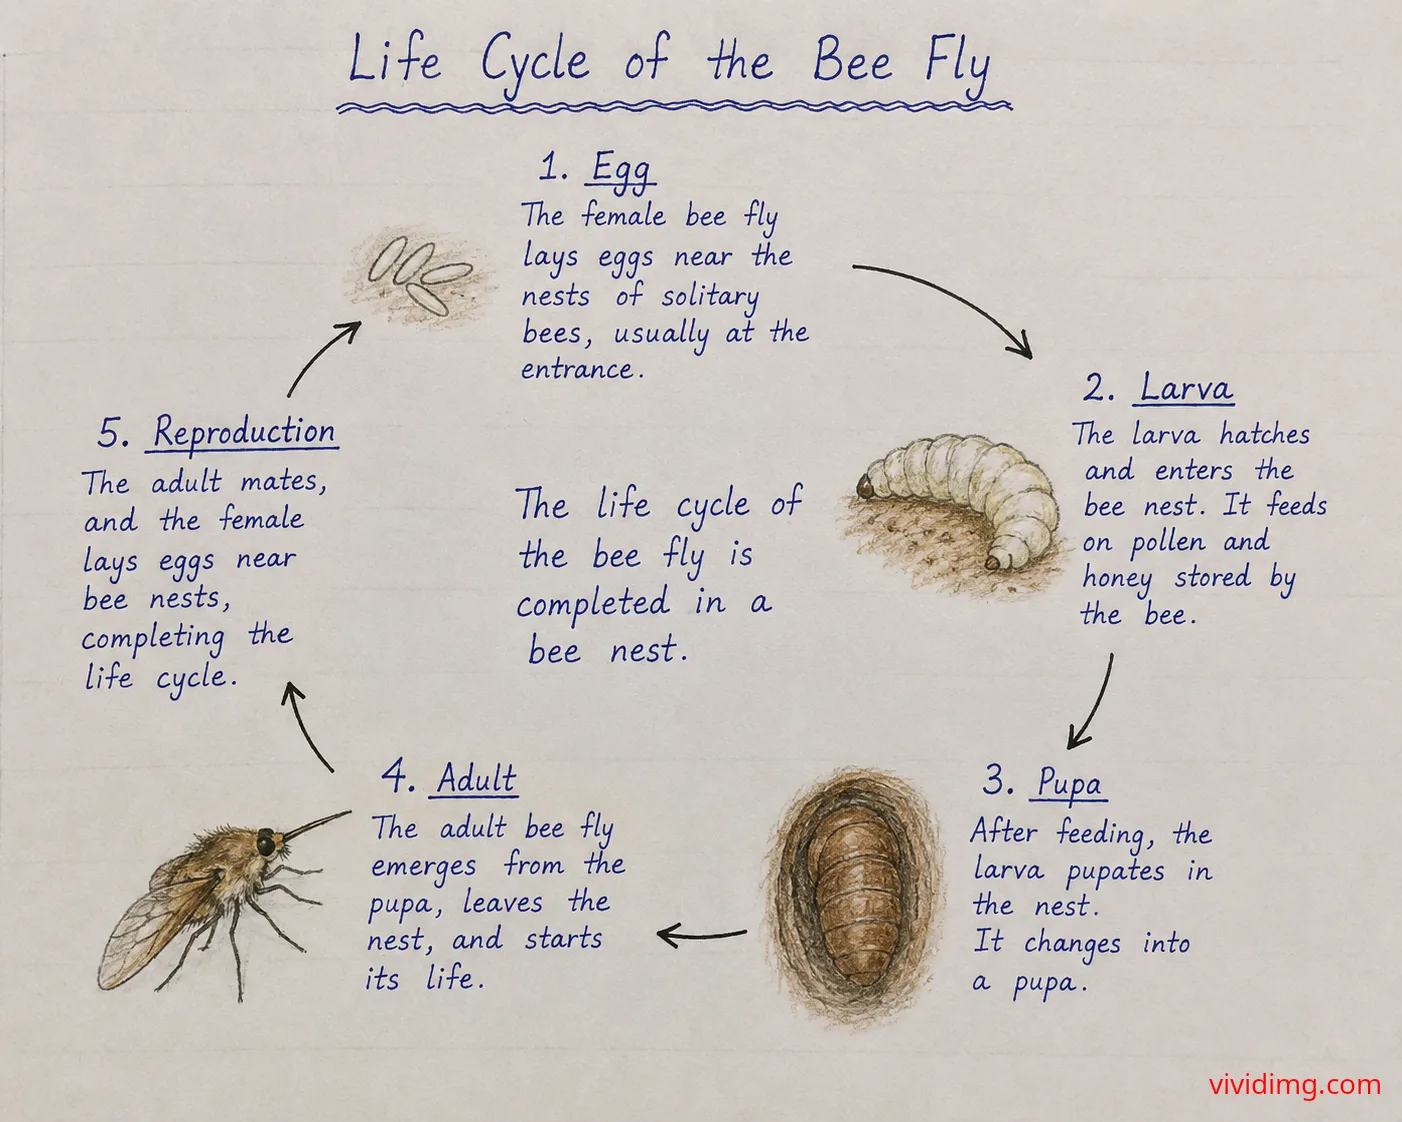 Life Cycle of the Bee Fly
1. Egg
The female bee fly
lays eggs near the
nests of solitary
bees, usually at the
entrance.
2. Larva
The larva hatches
and enters the
bee nest. It feeds
on pollen and
honey stored by
the bee.
3. Pupa
After feeding, the
larva pupates in
the nest.
It changes into
a pupa.
4. Adult
The adult bee fly
emerges from the
pupa, leaves the
nest, and starts
its life.
5. Reproduction
The adult mates,
and the female
lays eggs near
bee nests,
completing the
life cycle.
The life cycle of
the bee fly is
completed in a
bee nest.
vividimg.com